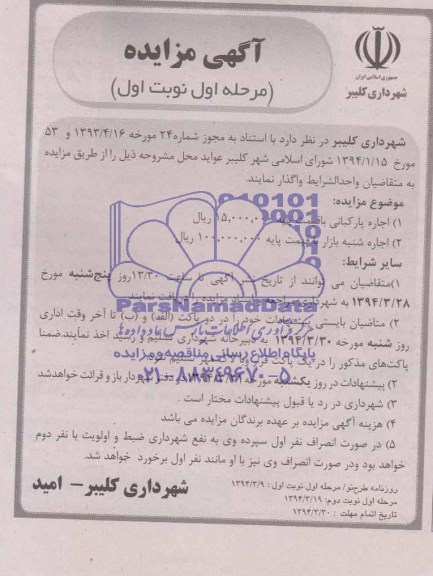 آگهی مزایده
(مرحله اول نوبت اول)
جمهوری اسلامی ایران
شهرداری کلیبر
شهرداری کلیبر در نظر دارد با استناد به مجوز شماره ۲۴ مورخه ۱۳۹۳/۴/۱۶ و ۵۳
مورخ ۱۳۹۴/۱/۱۵ شورای اسلامی شهر کلیبر عواید محل مشروحه ذیل را از طریق مزایده
به متقاضیان واجدالشرایط واگذار نمایند.
موضوع مزایده:
۱) اجاره پارکبانی با قیمت پایه ریال
۲) اجاره شنبه بازار به قیمت پایه ۱۰۰,۰۰۰,۰۰۰ ریال
سایر شرایط:
۱)متقاضیان می توانند از تاریخ نشر آگهی تا ساعت ۱۳/۳۰ روز پنج‌شنبه مورخ
۱۳۹۴/۳/۲۸ به شهرداری مراجعه و اسناد مزایده را دریافت نمایند
۲) متاضیان بایستی پیشنهادات خود را در دو پاکت (الف) و (ب) تا آخر وقت اداری
روز شنبه مورخه ۱۳۹۴/۳/۳۰ به دبیرخانه شهرداری تسلیم و رسید اخذ نمایند.ضمنا
پاکت‌های مذکور را در یک پاکت
۲) پیشنهادات در روز یکشنبه مورخه در دفتر شهردار باز و قرائت خواهدشد
۳) شهرداری در رد یا قبول پیشنهادات مختار است .
۴) هزینه آگهی مزایده بر عهده برندگان مزایده می باشد
۵) در صورت انصراف نفر اول سپرده وی به نفع شهرداری ضبط و اولویت با نفر دوم
خواهد بود ودر صورت انصراف وی نیز با او مانند نفر اول برخورد خواهد شد.
روزنامه طرح‌نو/ مرحله اول نوبت اول: ۱۳۹۴/۳/۹
مرحله اول نوبت دوم: ۱۳۹۴/۳/۱۹
تاریخ اتمام مهلت : ۱۳۹۴/۳/۳۰
شهرداری کلیبر – امید
ParsNamadData
مرکز فرآوری اطلاعات پارس نماد داده‌ها
پایگاه اطلاع رسانی مناقصه و مزایده
۰۲۱-۸۸۳۴۹۶۷۰-۵